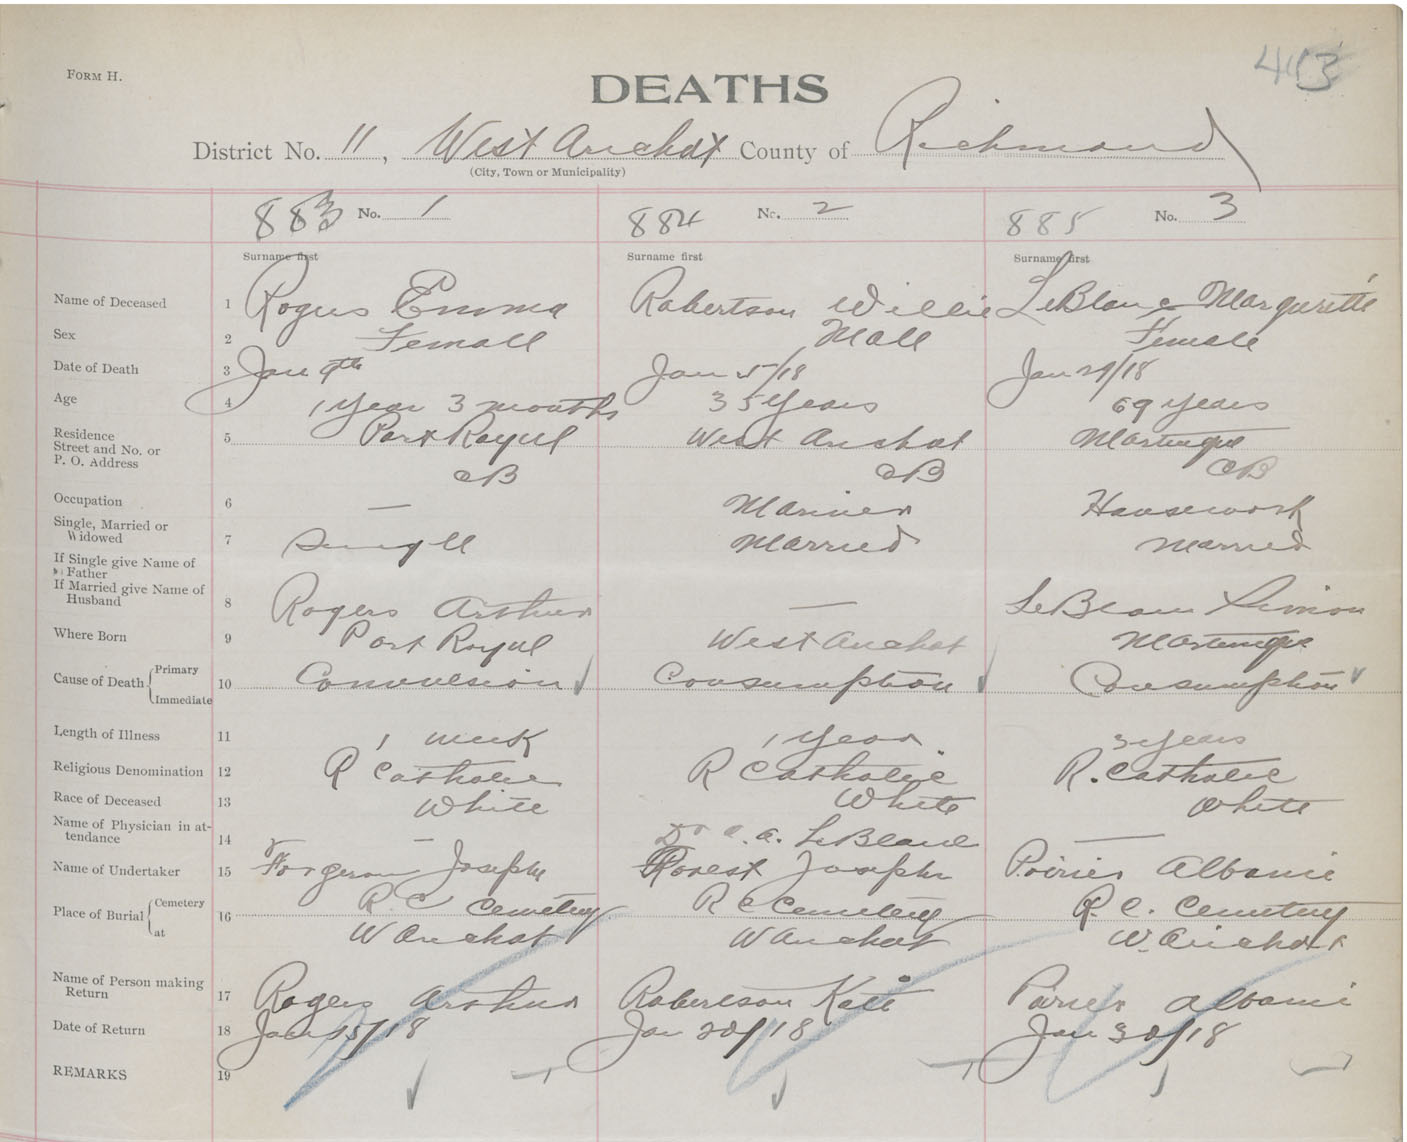 FORM H.
413
DEATHS
District No. 11, West Arichat County of Richmond
(City, Town or Municipality)
883 No. 1 884 No. 2 885 No. 3
Surname first Surname first Surname first
Name of Deceased 1 Rogers Emma Robertson Willie LeBlanc Margurite
Sex 2 Femall Mall Female
Date of Death 3 Jan 9th Jan 5/18 Jan 29/18
Age 4 1 year 3 months 35 years 69 years
Residence Street and No. or P. O. Address 5 Port Royul West Arichat Martinique
CB CB CB
Occupation 6 — Mariner Housework
Single, Married or Widowed 7 Singll Married Married
If Single give Name of Father
If Married give Name of Husband 8 Rogers Arthur — LeBlanc Simon
Where Born 9 Port Royul West Arichat Martinique
Cause of Death Primary Immediate 10 Convulsion Consumption Consumption
Length of Illness 11 1 week 1 year 3 years
Religious Denomination 12 R Catholic R Catholic R. Catholic
Race of Deceased 13 White White White
Name of Physician in attendance 14 — Dr LeBlanc —
Name of Undertaker 15 Forgeron Joseph Forest Joseph Poirier Albanie
Place of Burial Cemetery at 16 R. C Cemetery R C Cemetery R. C. Cemetery
W Arichat W Arichat W. Arichat
Name of Person making Return 17 Rogers Arthur Robertson Kate Poirier Albanie
Date of Return 18 Jan 15/18 Jan 20/18 Jan 30/18
REMARKS 19